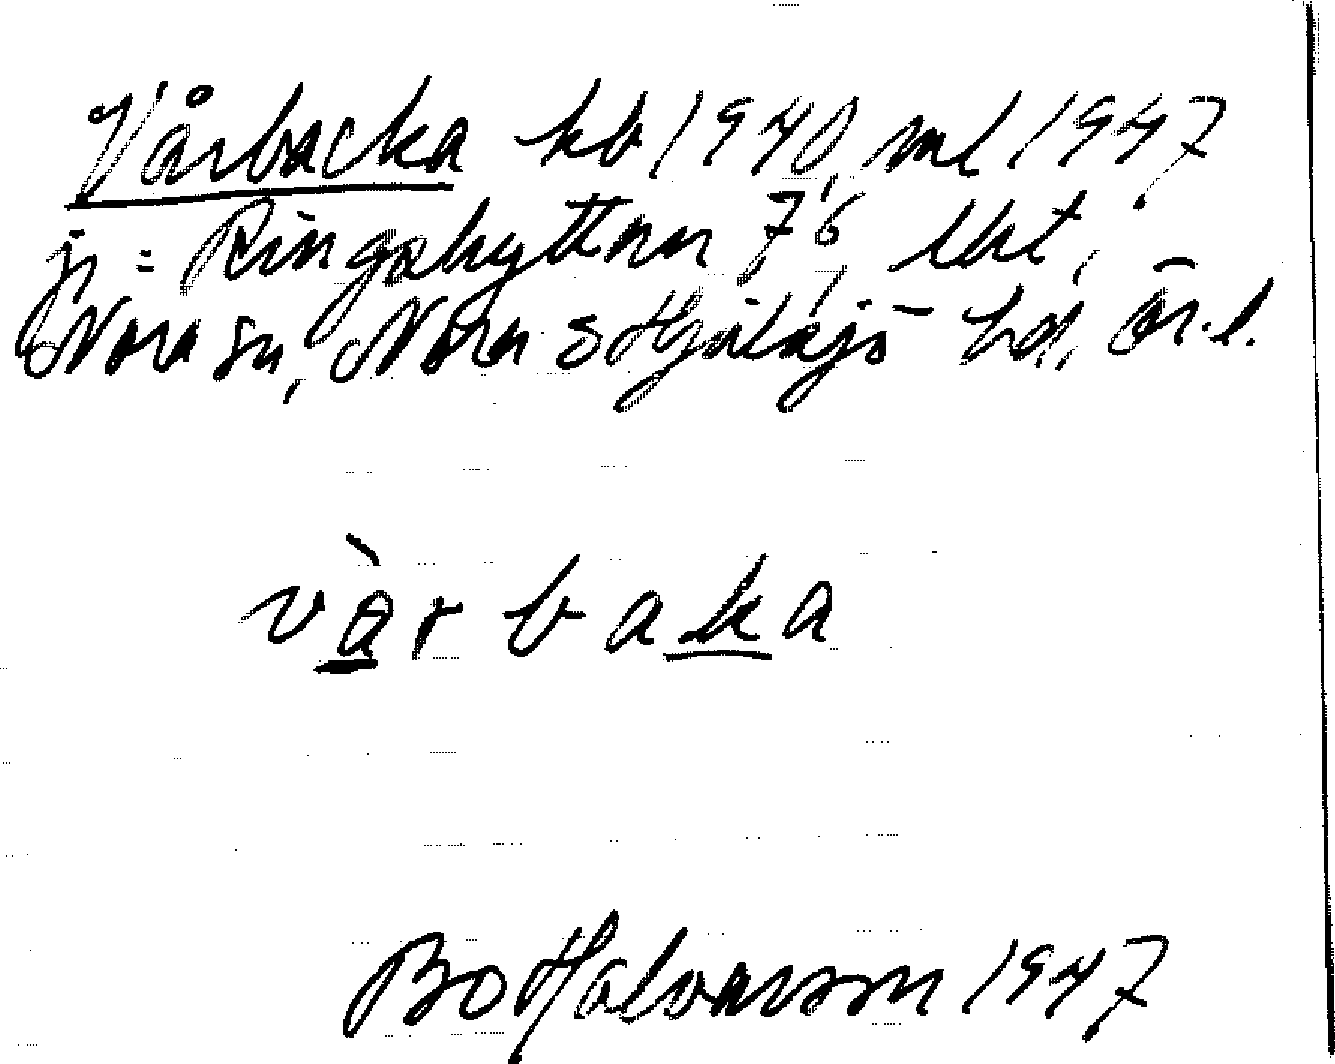 Vårbacka kb 1940, ml 1947
= Ringshyttan 7⁶, lht,
Nora sn, Nora o Hjulsjö hd, Ör.l.
vàrbaka
Bo Halvarsson 1947